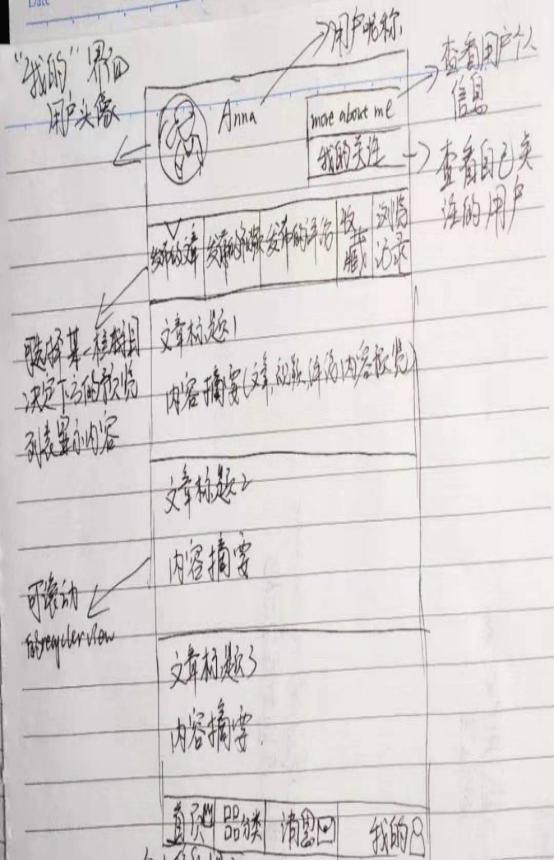 Date
用户昵称
"我的"界面
用户头像
Anna
more about me
我的关注
查看用户个
信息
查看自己关
注的用户
发布的文章 发布的视频 发布的评论 收藏 浏览记录
可选择某一栏栏目
决定下方的预览
列表显示内容
文章标题1
内容摘要(文章,视频,评论内容预览)
文章标题2
内容摘要
可滚动
的recyclerview
文章标题3
内容摘要
首页 品分类 消息 我的